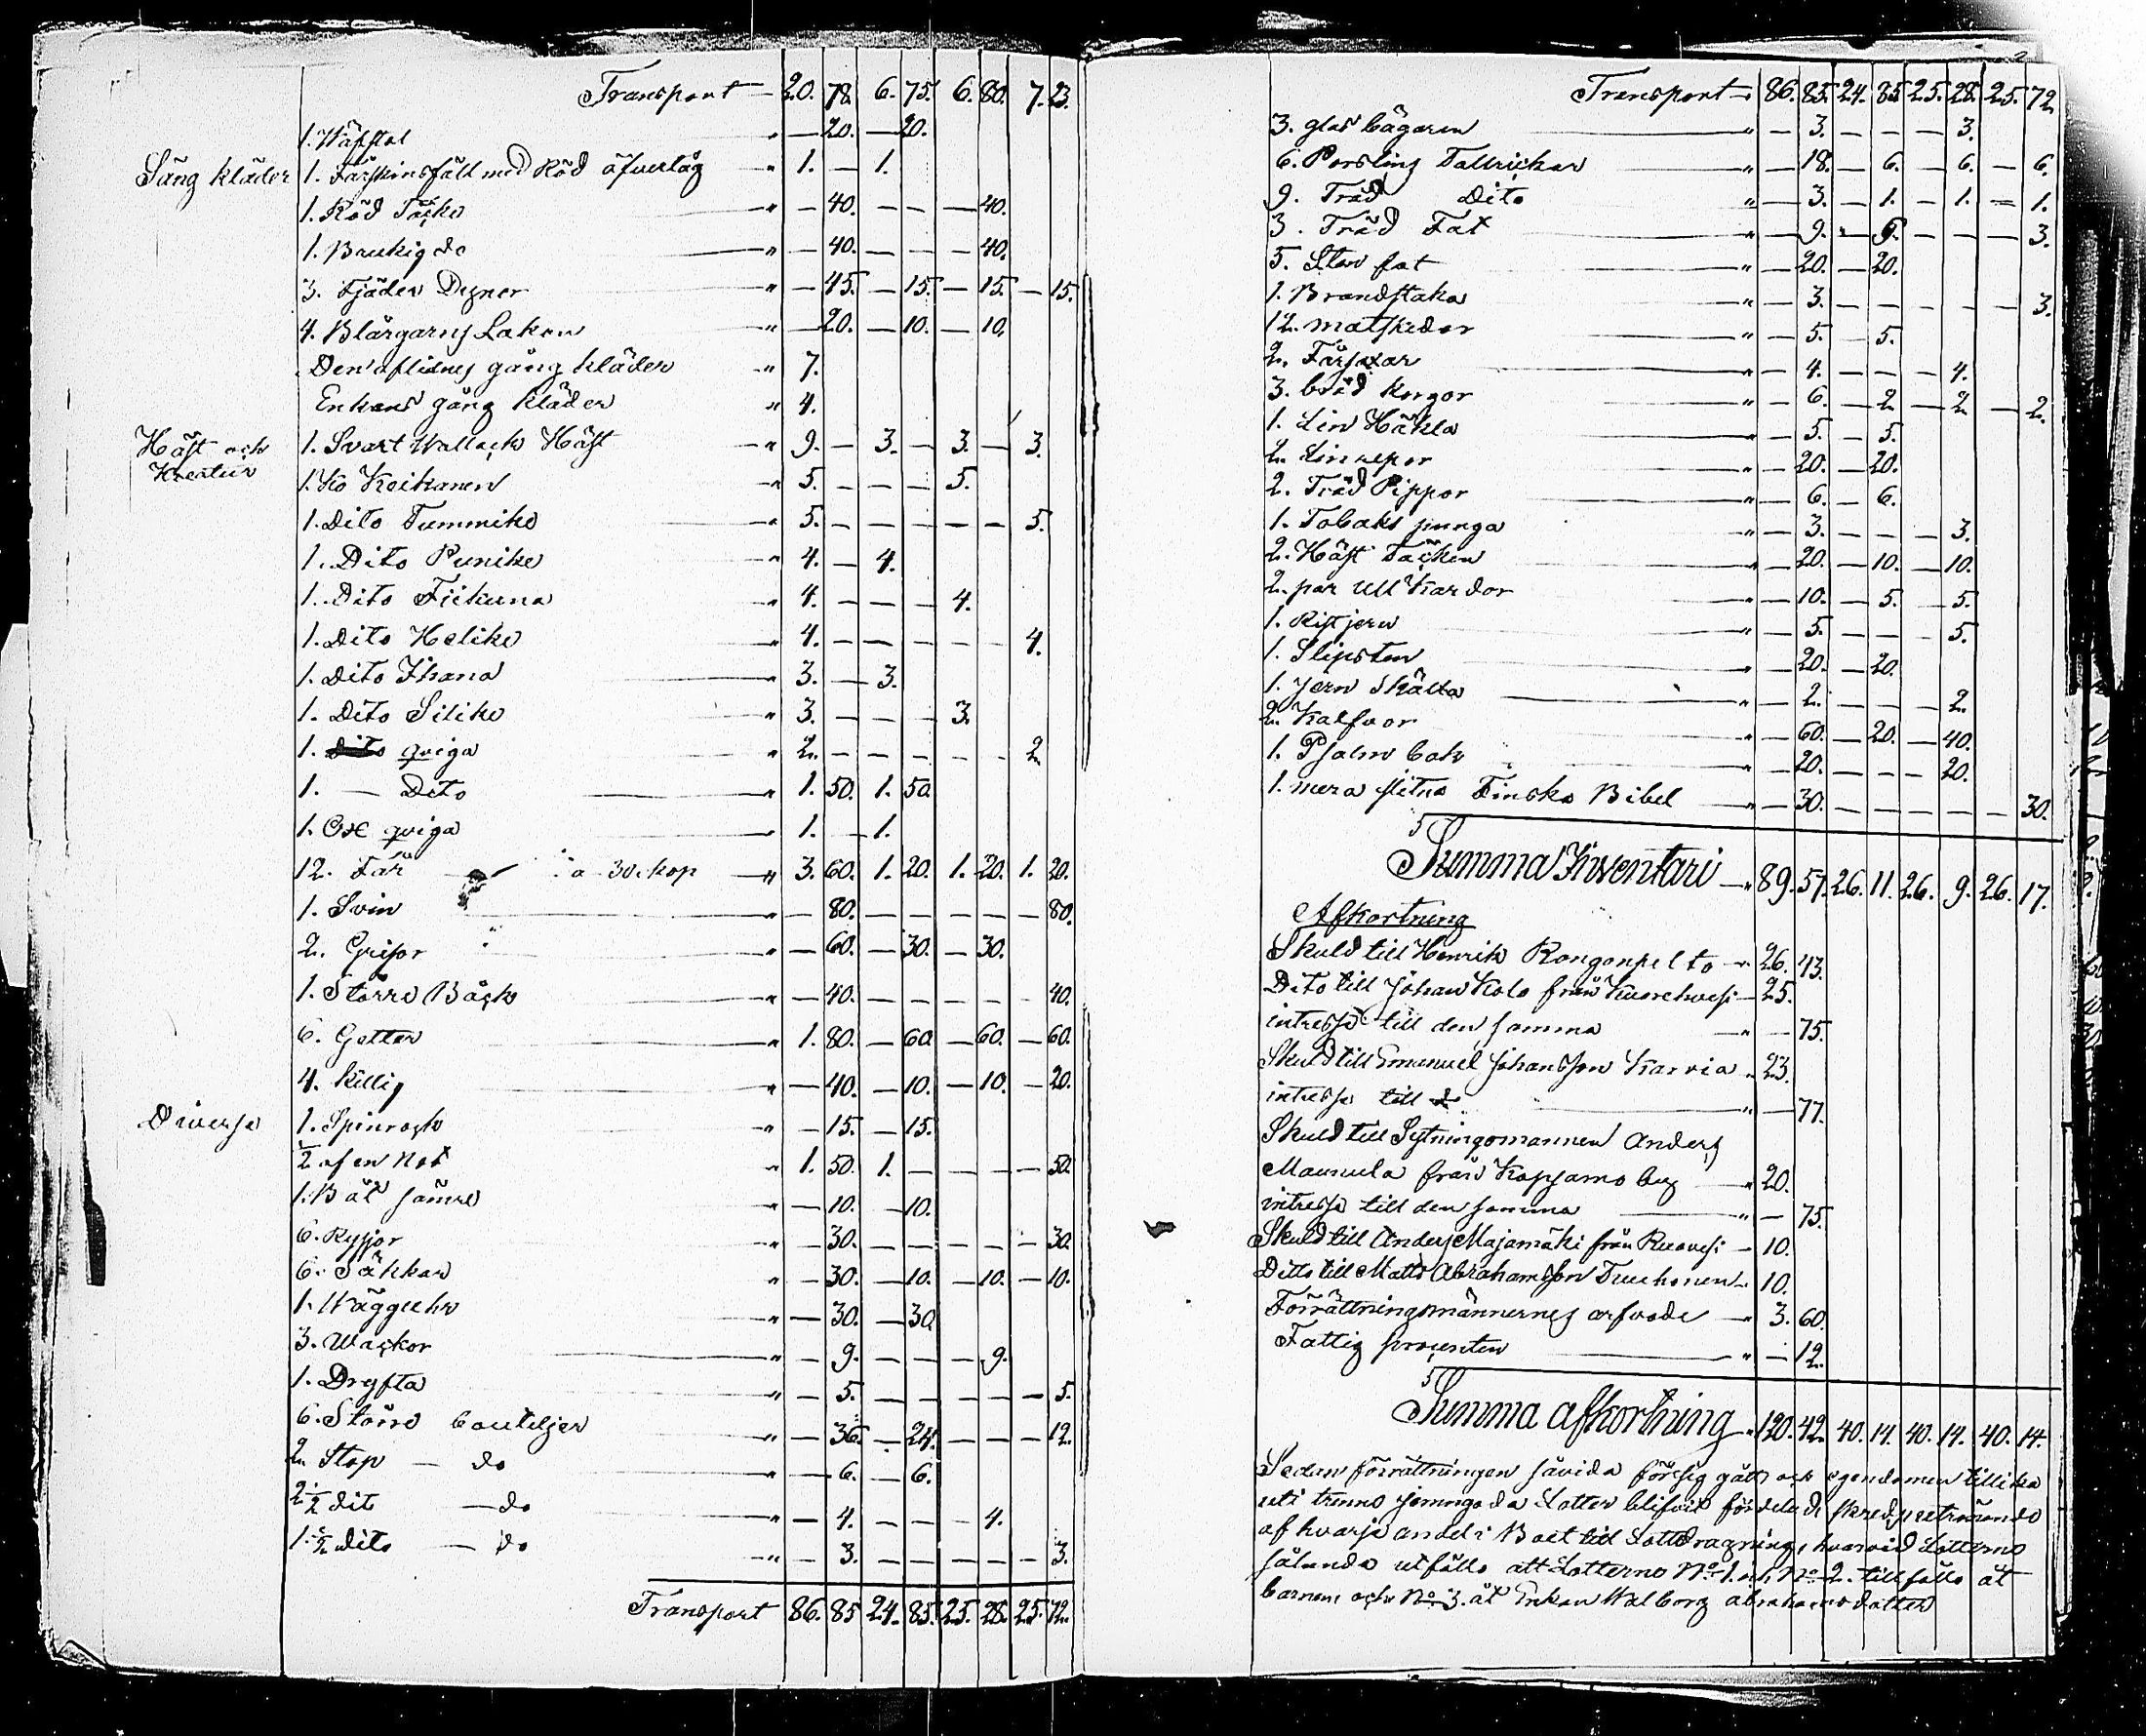 Transport — 20. 78. 6. 75. 6. 80. 7. 23.
1. Wäfstol " — 20. — 20.
Säng kläder 1. Fårskinsfäll med Röd öfvertåg " 1. — 1.
1. Röd Täcke " — 40. — — — 40.
1. Brukig do " — 40. — — — 40.
3. Fjäder Dynor " — 45. — 15. — 15. — 15.
4. Blårgarns Lakan " — 20. — 10. — 10.
Den aflidnes gång kläder " 7.
Enkans gång kläder " 4.
Häst och 1. Svart Wallack Häst " 9. — 3. — 3. — 3.
Kreatur
1. Ko Koikanen " 5. — — — 5.
1. Dito Tummike " 5. — — — — — 5.
1. Dito Punike " 4. — 4.
1. Dito Fiikuna " 4. — — — 4.
1. Dito Helike " 4. — — — — — 4.
1. Dito Ihana " 3. — 3.
1. Dito Silike " 3. — — — 3.
1. Dito qviga " 2. — — — — — 2.
1. — Dito " 1. 50. 1. 50.
1. Oxe qviga 1. — 1.
12. Får a 30. kop " 3. 60. 1. 20. 1. 20. 1. 20.
1. Svin " — 80. — — — — — 80.
2. Grisar " — 60. — 30. — 30.
1. Större Båck " — 40. — — — — — 40.
6. Getter " 1. 80. — 60. — 60. — 60.
4. Killig " — 40. — 10. — 10. — 20.
Diverse 1. Spinrock " — 15. — 15.
1/2 af en Not " 1. 50. 1. — — — — 50.
1. Båt sämre " — 10. — 10.
6. Ryssjor " — 30. — — — — — 30.
6. Säkkar " — 30. — 10. — 10. — 10.
1. Wäggeuhr " — 30. — 30.
3. Wackor " — 9. — — — 9.
1. Dryfta " — 5. — — — — — 5.
6. Större bouteljer " — 36. — 24. — — — 12.
2. Stop — do " — 6. — 6.
2. 1/2 dito — do " — 4. — — — 4.
1. 1/2 dito — do " — 3. — — — — — 3.
Transport 86. 85. 24. 85. 25. 28. 25. 72.
Transport — 86. 85. 24. 85. 25. 28. 25. 72.
3. glas bägaren " — 3. — — — 3.
6. Porslins Tallrickar " — 18. — 6. — 6. — 6.
9. Träd Dito " — 3. — 1. — 1. — 1.
3. Träd Fat " — 9. — 6. — — — 3.
5. Sten fat " — 20. — 20.
1. Brandstaka " — 3. — — — — — 3.
12. matskedar " — 5. — 5.
2. Fårsaxar " — 4. — — — 4.
3. bröd korgor " — 6. — 2. — 2. — 2.
1. Lin Häkla " — 5. — 5.
2. Linrepor " — 20. — 20.
2. Träd Pippor " — 6. — 6.
1. Tobaks punga " — 3. — — — 3.
2. Häst Täcken " — 20. — 10. — 10.
2. par Ull Kardor " — 10. — 5. — 5.
1. Ristjern " — 5. — — — 5.
1. Slipsten " — 20. — 20.
1. Jern Skälla " — 2. — — — 2.
2. Kalfvar " — 60. — 20. — 40.
1. Psalm bok " — 20. — — — 20.
1. mera slitna Finska Bibel " — 30. — — — — — 30.
Summa Inventari " 89. 57. 26. 11. 26. 9. 26. 17.
Afkortning
Skuld till Henrik Rongonpelto " 26. 43.
Dito till Johan Kolo från Kuorehvesi — 25.
intresse till den samma " — 75.
Skuld till Emanuel Johansson Karvia " 23.
intresse till d " — 77.
Skuld till Sytningsmannen Anders
Maunula från Kapsamo by " 20.
intresse till den samma " — 75.
Skuld till Anders Majamäki från Ruovesi — 10.
Ditto till Matts Abrahamsson Tuuhonen " 10.
Förrättningsmännernes arfvode " 3. 60.
Fattig procenten " — 12.
Summa afkortning " 120. 42. 40. 14. 40. 14. 40. 14.
Sedan förrättningen såvida försig gått och egendomen tillika
uti trenne jemngoda Lotter blifvit fördelad, skreds
af hvarje andel i Boet till Lottdragning, hvarvid Lotterne
sålunda utföllo att Lotterne No 1. och No 2. tillföllo åt
barnen och No 3. åt Enkan Walborg abrahamsdotter